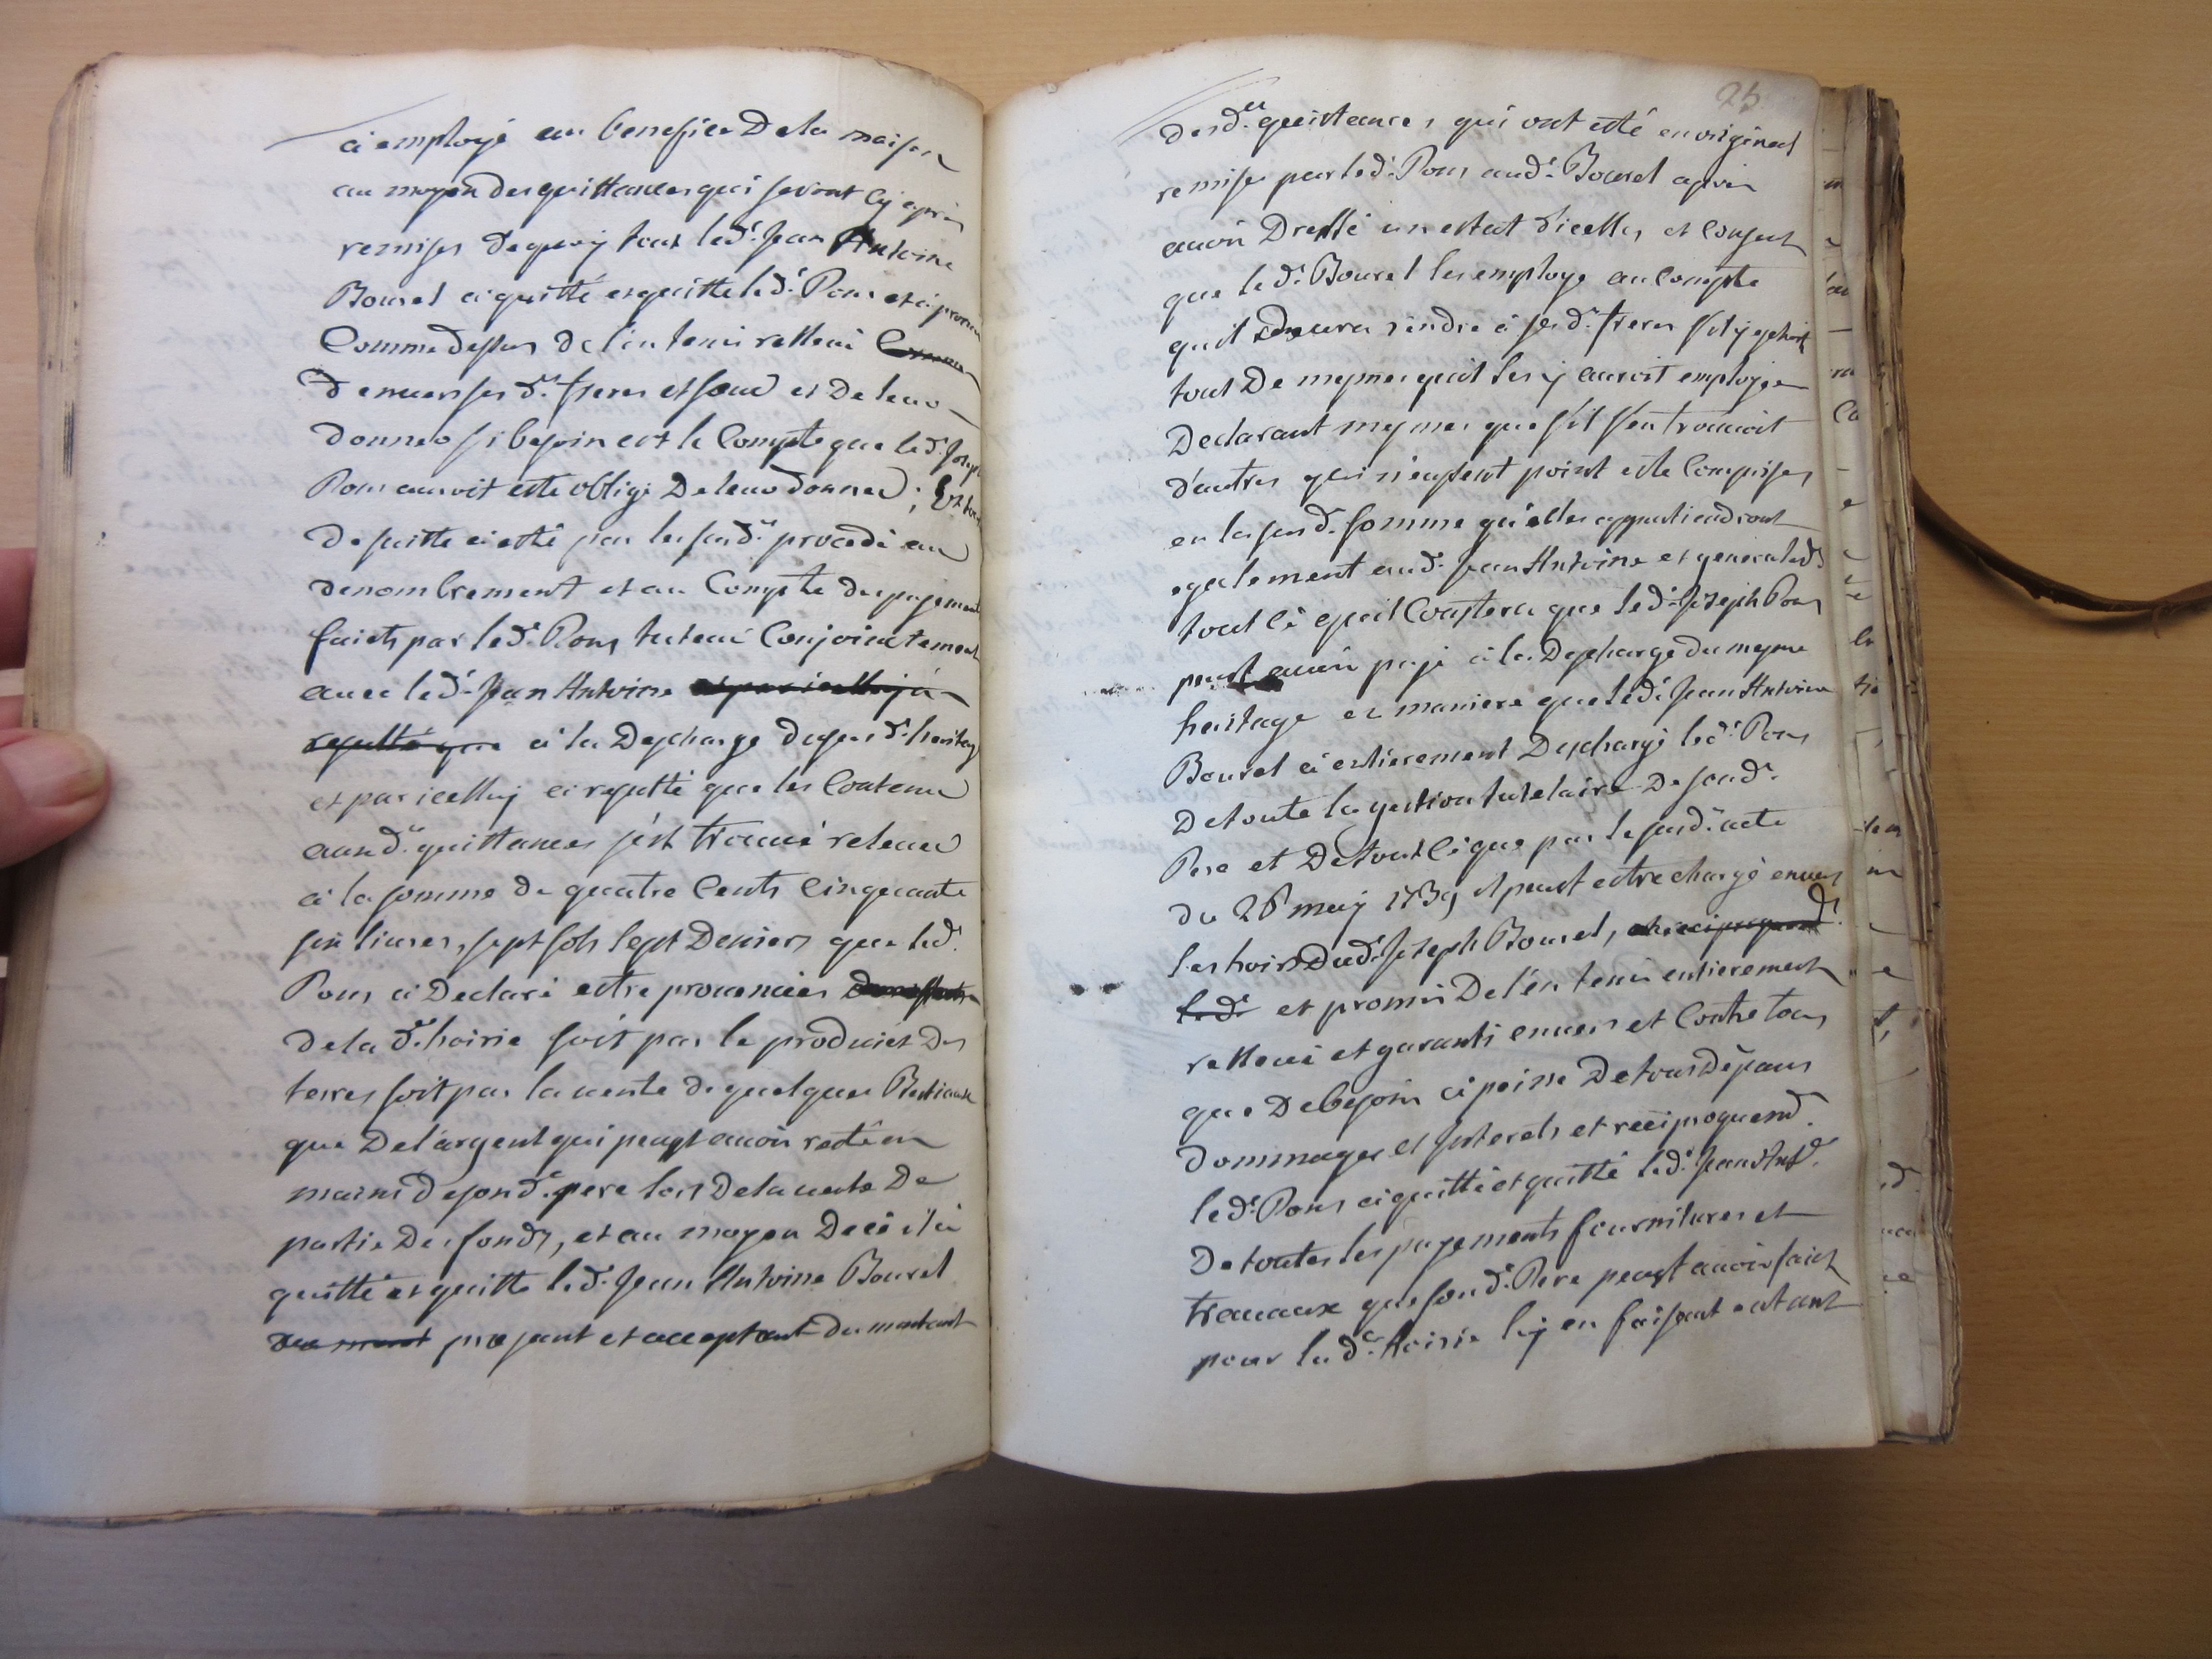 a employé au benefice De la maison
au moyen des quittances qui seront cy apres
remises de quoy tout led. Jean Antoine
Bourel a quitté et quitte led. Pons et a promis
Comme dessus de l'en tenir relleué Comme
enuers ses d. freres et soeur et De leur
donner si besoin est le Compte que led. Joseph
Pons auroit esté obligé De leur donner ; Et tout
De suitte a esté par les sus d. procedé au
denombrement et au Compte des payements
faicts par led. Pons tuteur Conjoinctement
auec led. Jean Antoine et par icelluy a
resulté que a la Descharge de sus d. heritage
et par icelluy a resulté que les Contenu
auxd. quittances s'est trouué releuer
a la somme de quatre Cents Cinquante
six liures, sept sols sept Deniers que led.
Pons a Declaré estre prouenues
De la d. hoirie soit par le produict Des
terres soit par la uente de quelques Bestiaux
que De l'argent qui peust auoir resté en
mains de son d. pere lors De la uente De
partie Des fonds, et au moyen De ce il a
quitté et quitte led. Jean Antoine Bourel
present et acceptant du montant
25
Des d. quittances qui ont esté en original
remises par led. Pons aud. Bourel apres
auoir Dressé un estat d'icelles et Consent
que led. Bourel les employe au Compte
quil Deura rendre a ses d. freres s'il y eschoit
tout De mesmes quil les y auroit employées
Declarant mesmes que s'il s'en trouuoit
d'autres qui n'eussent point esté Comprises
en la sus d. somme qu'elles appartiendront
egalement aud. Jean Antoine et
tout ce quil Coustera que led. Joseph Pons
peust auoir payé a la Descharge du mesme
heritage en maniere que led. Jean Antoine
Bourel a entierement Deschargé led. Pons
De toute la gestion tutelaire De son d.
Pere et De tout ce que par le sus d. acte
du 28 may 1739 il peust estre chargé enuers
les hoirs Dud. Joseph Bourel, et reciproquemt
led. et promis De l'en tenir entierement
relleué et garanti enuers et Contre tous
que De besoin a peine De tous Dépans
Dommages et Interets et reciproquemt.
led. Pons a quitté et quitte led. Jean Ant.
De toutes les payements fournitures et
trauaux que son d. Pere peust auoir faict
pour la d. hoirie luy en faisant autant